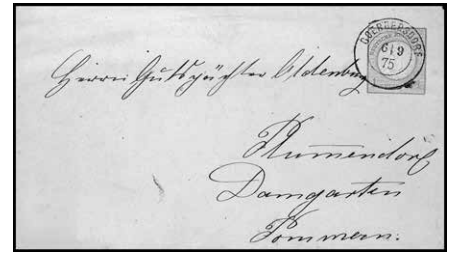 GOERBERSDORF
6 9
75
Herrn Gutspächter Oldenburg
Plummendorf
Damgarten
Pommern.